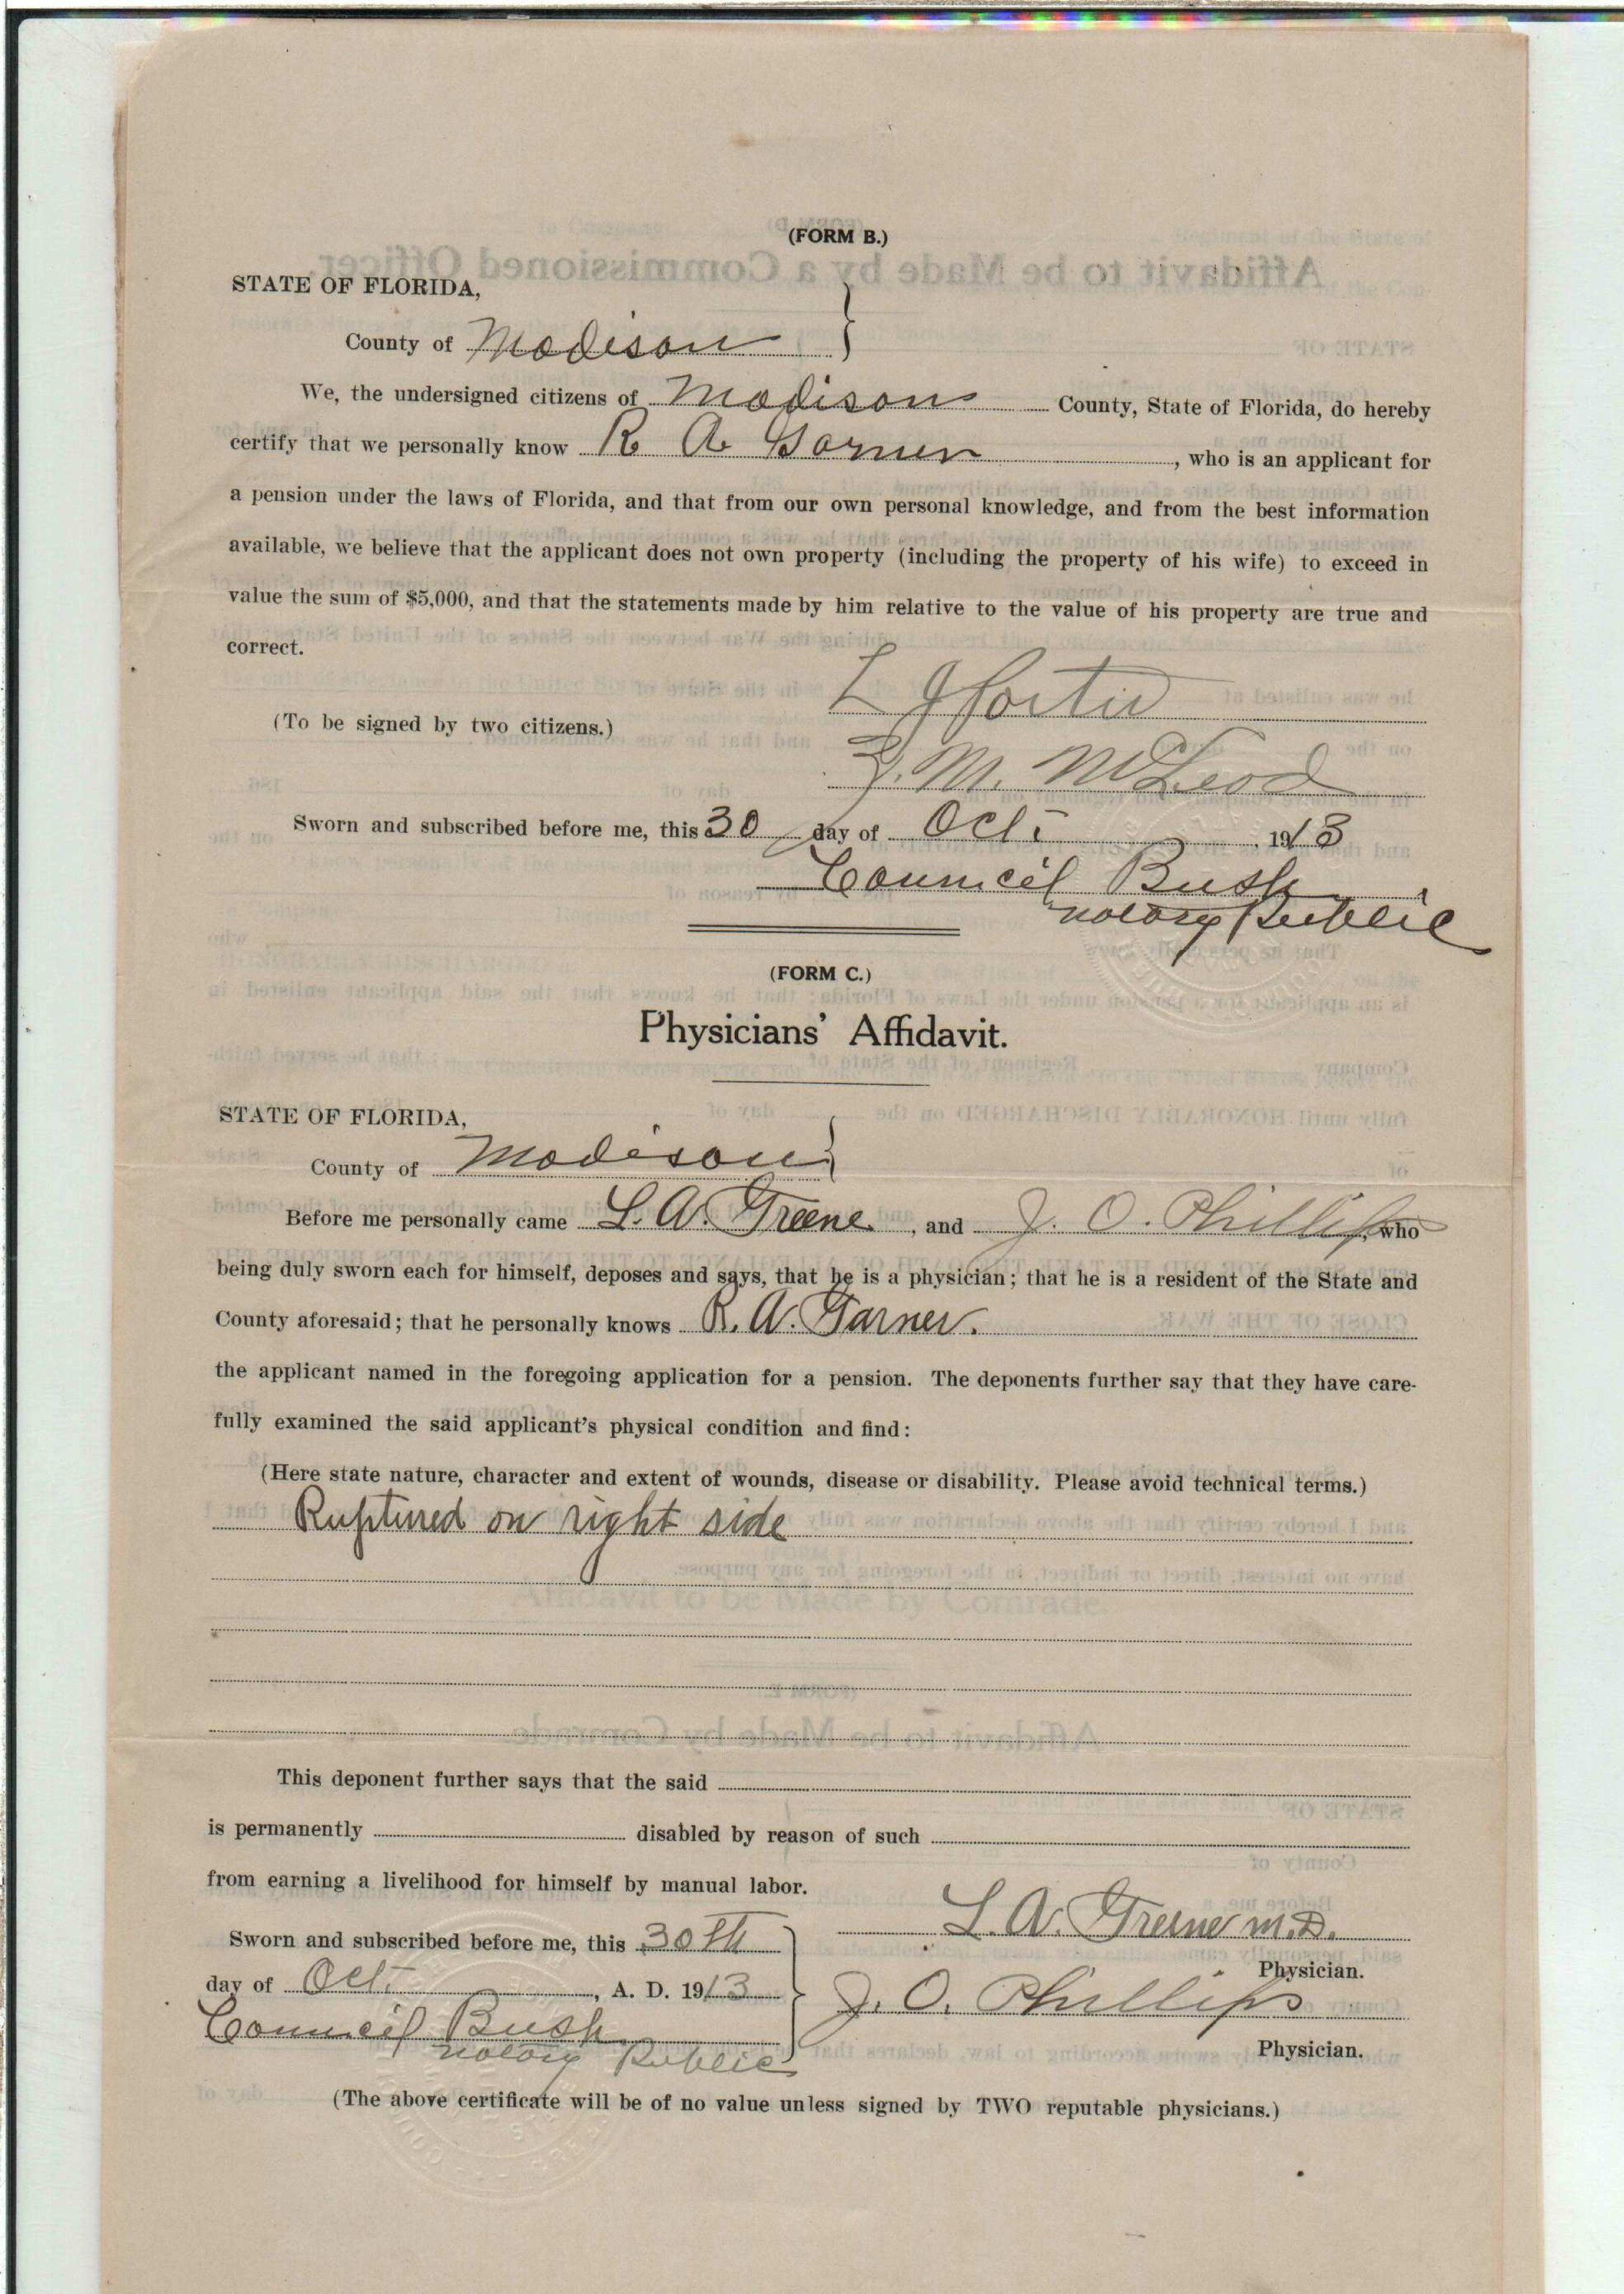 (FORM B.)
STATE OF FLORIDA,
County of Madison
We, the undersigned citizens of Madison County, State of Florida, do hereby
certify that we personally know R A Garner, who is an applicant for
a pension under the laws of Florida, and that from our own personal knowledge, and from the best information
available, we believe that the applicant does not own property (including the property of his wife) to exceed in
value the sum of $5,000, and that the statements made by him relative to the value of his property are true and
correct.
L
(To be signed by two citizens.)
M. McLeod
Sworn and subscribed before me, this 30 day of Oct. 1913
Council Bush
Notary Public
(FORM C.)
Physicians' Affidavit.
STATE OF FLORIDA,
County of Madison
Before me personally came L. A. Greene, and J. O. Phillips, who
being duly sworn each for himself, deposes and says, that he is a physician; that he is a resident of the State and
County aforesaid; that he personally knows R. A. Garner.
the applicant named in the foregoing application for a pension. The deponents further say that they have care-
fully examined the said applicant's physical condition and find:
(Here state nature, character and extent of wounds, disease or disability. Please avoid technical terms.)
Ruptured on right side
This deponent further says that the said
is permanently disabled by reason of such
from earning a livelihood for himself by manual labor.
L. A. Greene M.D.
Sworn and subscribed before me, this 30th
Physician.
day of Oct., A. D. 1913
J. O. Phillips
Council Bush
Notary Public
Physician.
(The above certificate will be of no value unless signed by TWO reputable physicians.)